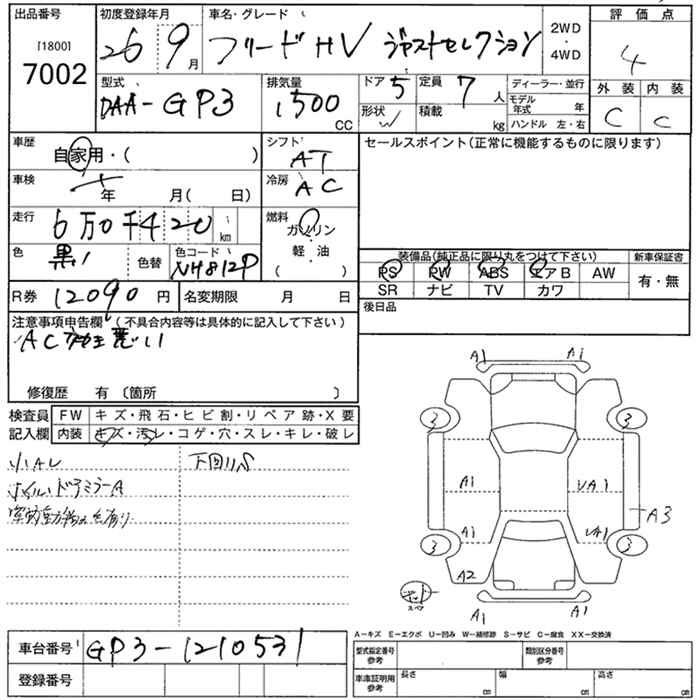 出品番号 初度登録年月 車名・グレード 2WD 評価点
[1800] 26 9月 フリードHV ジャストセレクション ・ 4
7002 4WD 外装 内装
型式 排気量 ドア 5 定員 7人 ディーラー・並行 C C
DAA-GP3 1500 CC 形状 W 積載 kg モデル年式 年
ハンドル 左・右
車歴 自家用・( ) シフト AT セールスポイント(正常に機能するものに限ります)
車検 年 月( 日) 冷房 AC
走行 6万0千420 km 燃料 ガソリン
色 黒 色替 色コード NH812P 軽・油 装備品(純正品に限り丸をつけて下さい) 新車保証書
( ) PS PW ABS エアB AW 有・無
R券 12090円 名変期限 月 日 SR ナビ TV カワ
後日品
注意事項申告欄 (不具合内容等は具体的に記入して下さい)
AC 悪い
修復歴 有 〔箇所 〕
検査員 FW キズ・飛石・ヒビ割・リペア跡・X要
記入欄 内装 キズ・汚レ・コゲ・穴・スレ・キレ・破レ
小AU 下回りS
ホイル、ドアミラーA
A1 A1
3 3
A1 UA1
A3
A1 UA1
3 3
A2
スペア
A1 A1
A-キズ E-エクボ U-凹み W-補修跡 S-サビ C-腐食 XX-交換済
車台番号 GP3-1210531 型式指定番号 参考 類別区分番号 参考
登録番号 車庫証明用 参考 長さ cm 幅 cm 高さ cm